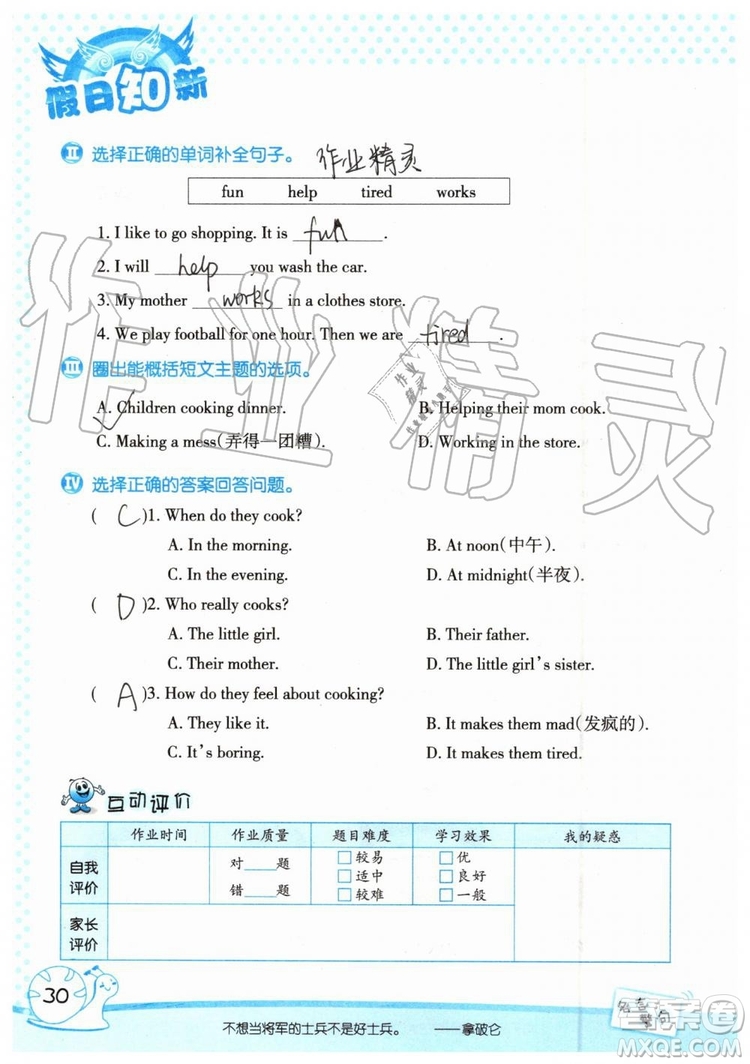 假日知新
II 选择正确的单词补全句子。 作业精灵
fun help tired works
1. I like to go shopping. It is fun.
2. I will help you wash the car.
3. My mother works in a clothes store.
4. We play football for one hour. Then we are tired.
III 圈出能概括短文主题的选项。
A. Children cooking dinner. B. Helping their mom cook.
C. Making a mess(弄得一团糟). D. Working in the store.
IV 选择正确的答案回答问题。
( C )1. When do they cook?
A. In the morning. B. At noon(中午).
C. In the evening. D. At midnight(半夜).
( D )2. Who really cooks?
A. The little girl. B. Their father.
C. Their mother. D. The little girl's sister.
( A )3. How do they feel about cooking?
A. They like it. B. It makes them mad(发疯的).
C. It's boring. D. It makes them tired.
互动评价
作业时间 作业质量 题目难度 学习效果 我的疑惑
自我评价 对____题 错____题 □较易 □适中 □较难 □优 □良好 □一般
家长评价
30
不想当将军的士兵不是好士兵。 ——拿破仑
名言警句
作业精灵
答案圈
MXQE.COM